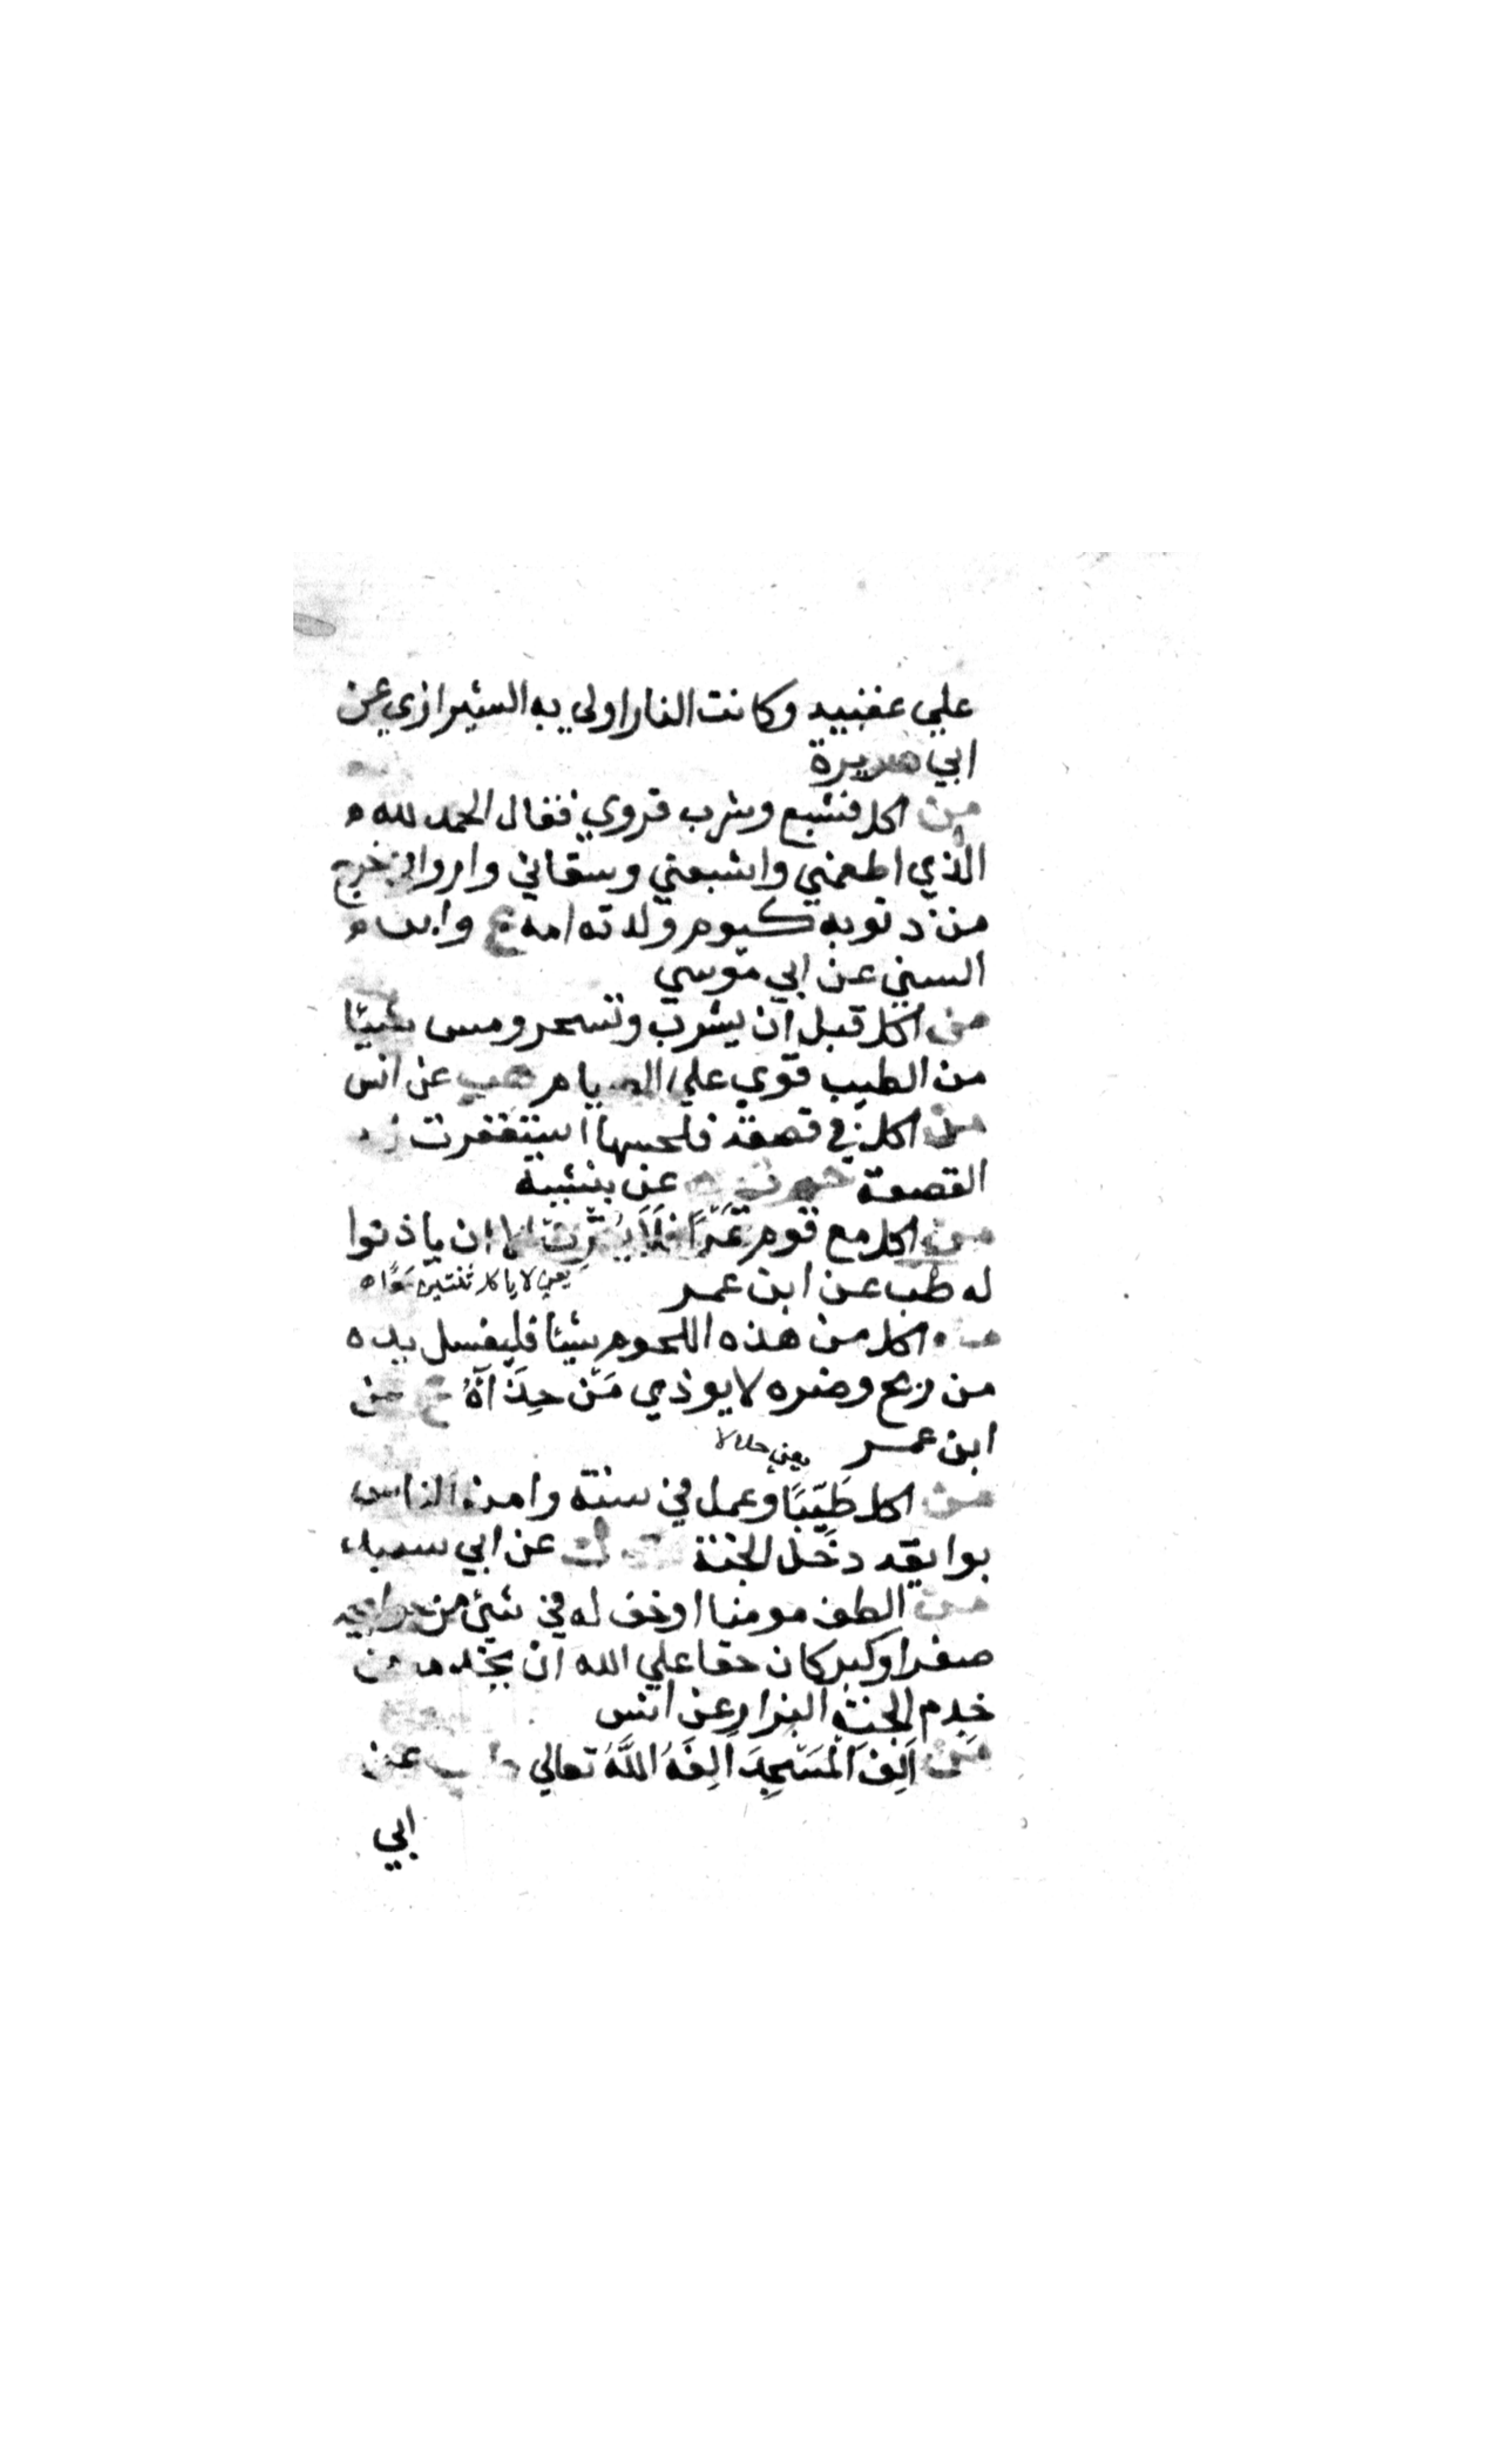 علي عفنبيد وكانت النار اولي به الشيرازي عن
ابي هريرة
من اكل فشبع وشرب فروي فقال الحمد لله
الذي اطعمني واشبعني وسقاني وارواني خرج
من ذنوبه كيوم ولدته امه ع وابن
السني عن ابي موسي
من اكل قبل ان يشرب وتسحر ومس شيئا
من الطيب قوي علي الصيام هب عن انس
من اكل في قصعة فلحسها استغفرت له
القصعة عن بنشبية
من اكل مع قوم تَمْرًا فَلَا يُقْرِن الا ان ياذنوا
له طب عن ابن عمر يعني لا ياكل ثنتين سَوًا
من اكل من هذه اللحوم شيئا فليغسل يده
من ريح وضره لا يوذي مَنْ حِذَآءَهُ ع عن
ابن عمر يعني حلالا
من اكل طَيِّبًا وعمل في سنة وامن الناس
بوايقه دخل الجنة ت ك عن ابي سعيد
من الطف مومنا او خف له في شيء من حوايجه
صغر او كبر كان حقا علي الله ان يخدمه من
خدم الجنة البزار عن انس
مَنْ اَلِفَ الْمَسْجِدَ اَلِفَهُ اللَّهُ تعالي طب عن
ابي